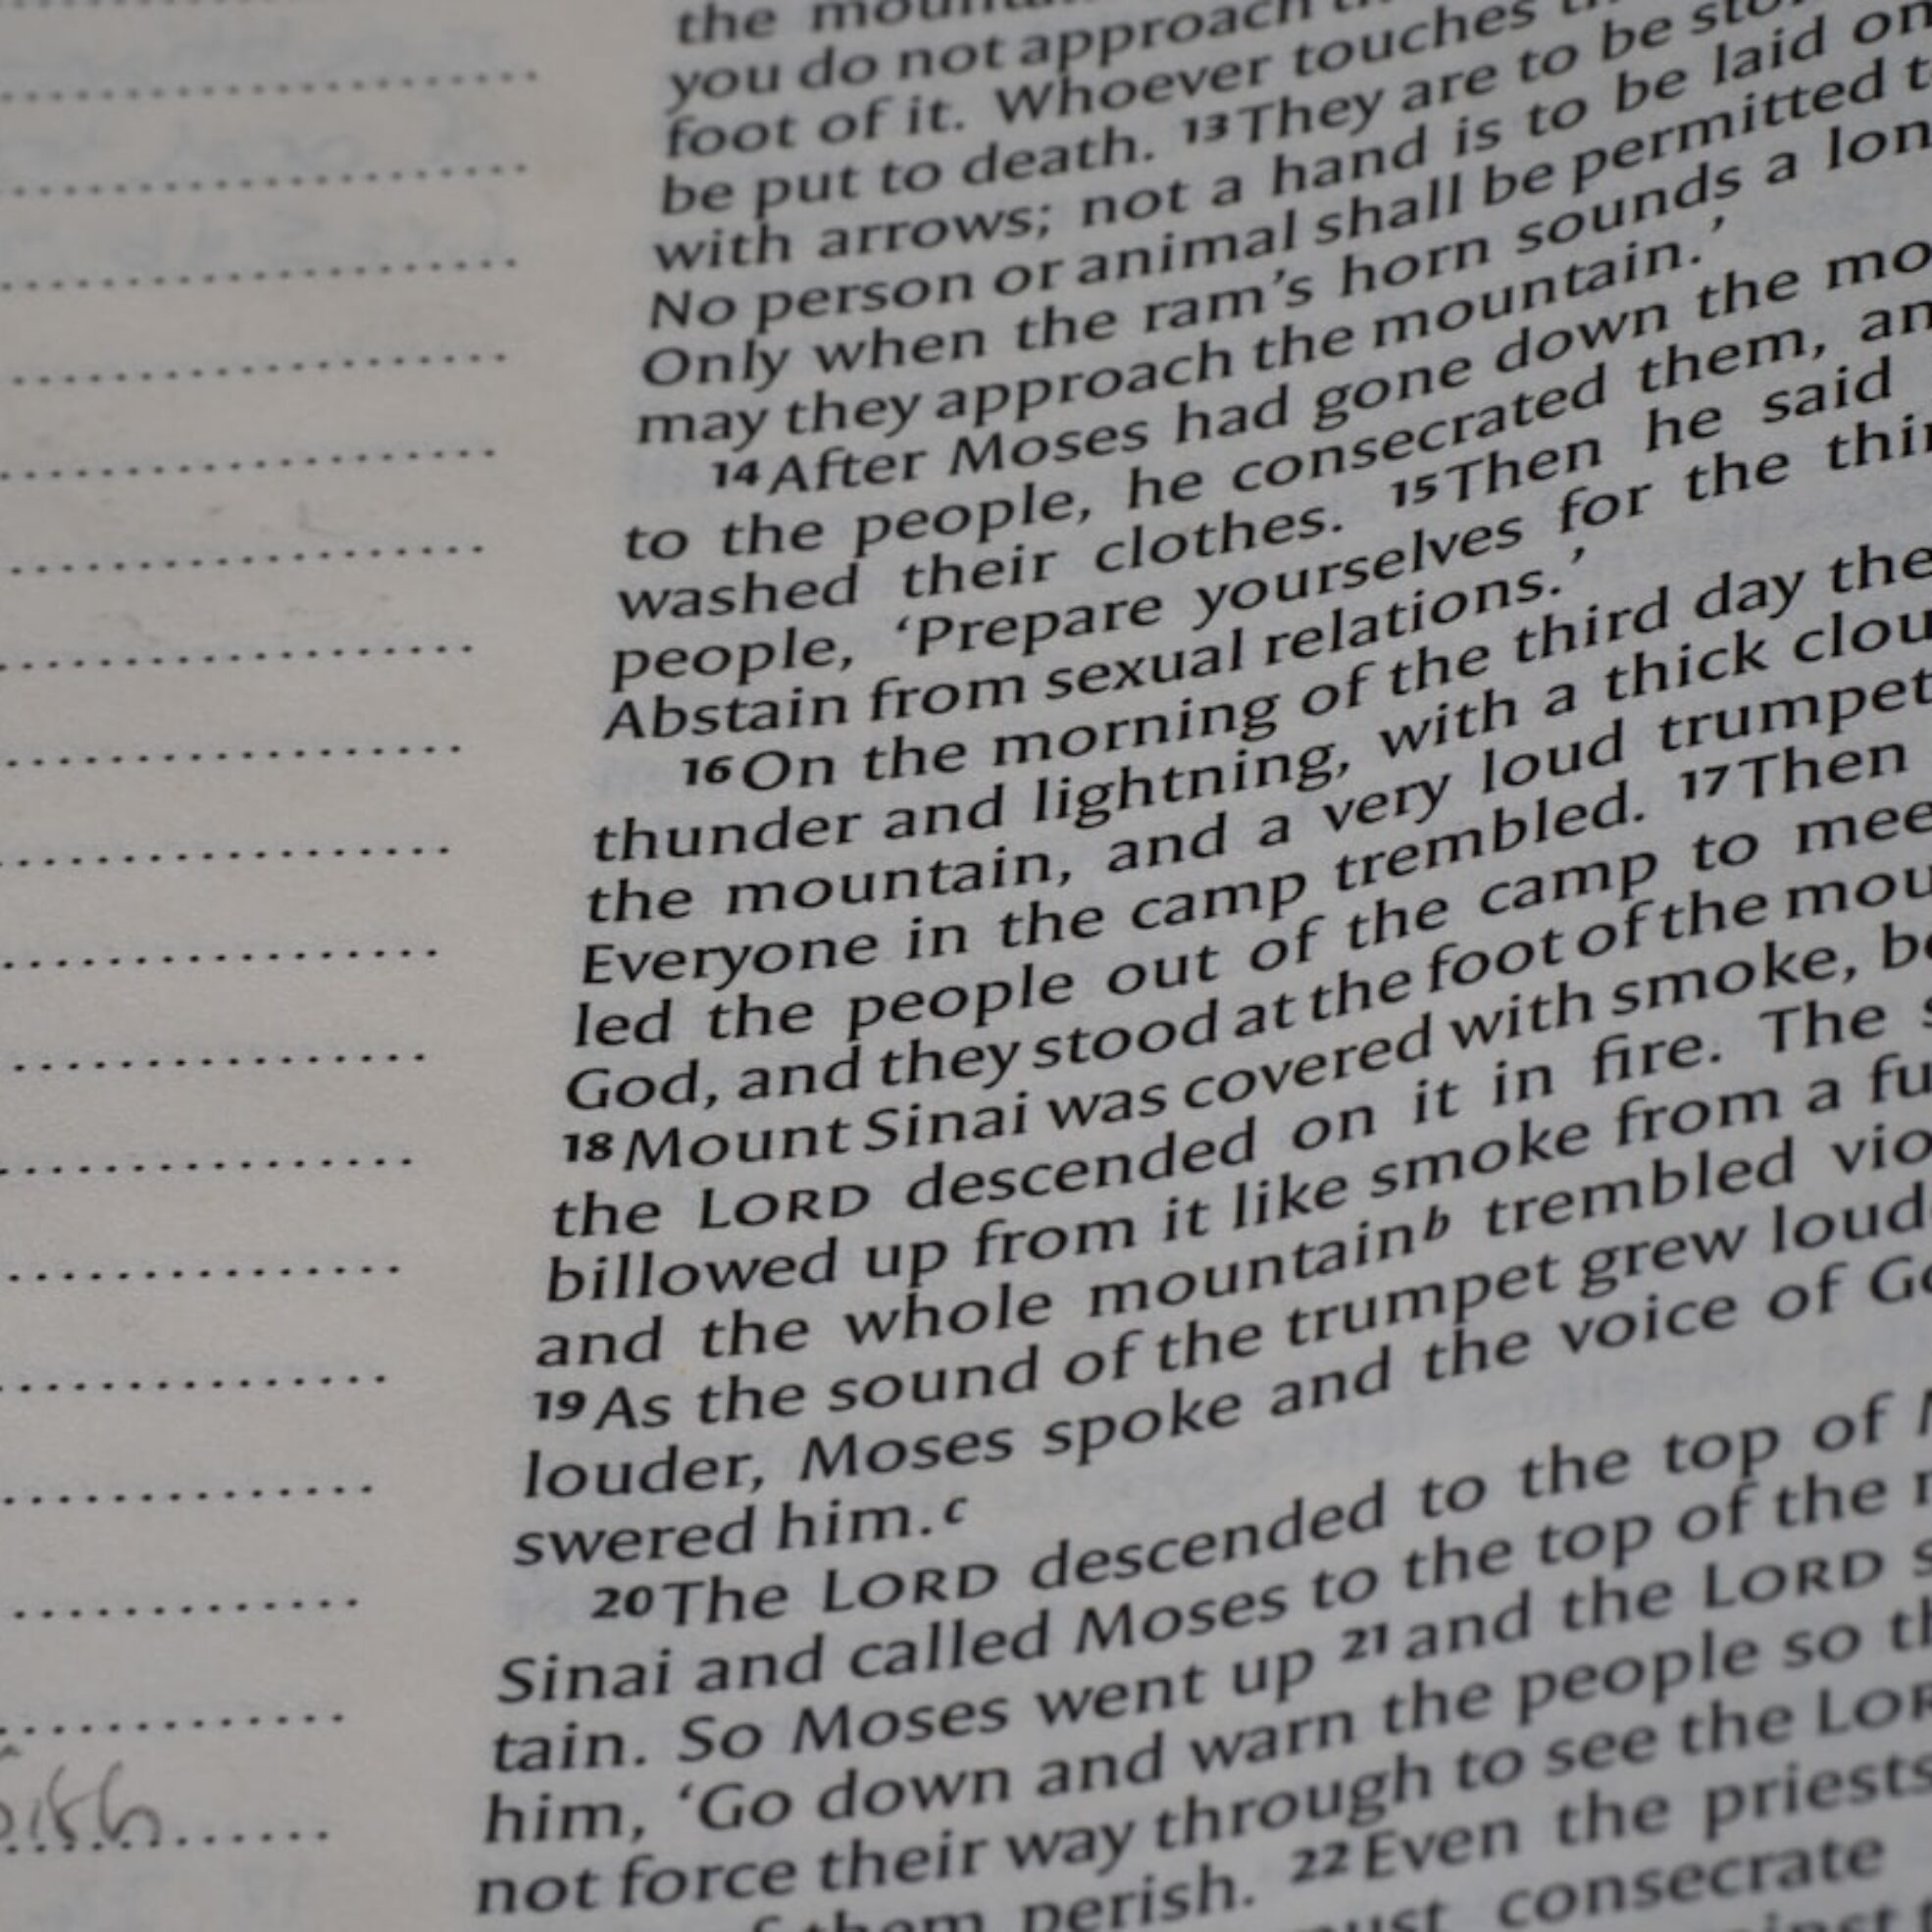 the
you do not approach
foot of it. Whoever touches
be put to death. 13 They are to be
with arrows; not a hand is to be laid on
No person or animal shall be permitted
Only when the ram's horn sounds a
may they approach the mountain.'
14 After Moses had gone down the
to the people, he consecrated them,
washed their clothes. 15 Then he said
people, 'Prepare yourselves for the
Abstain from sexual relations.'
16 On the morning of the third day
thunder and lightning, with a thick
the mountain, and a very loud trumpet
Everyone in the camp trembled. 17 Then
led the people out of the camp to
God, and they stood at the foot of the
18 Mount Sinai was covered with smoke,
the LORD descended on it in fire. The
billowed up from it like smoke from a
and the whole mountain b trembled
19 As the sound of the trumpet grew
louder, Moses spoke and the voice of
swered him. c
20 The LORD descended to the top of
Sinai and called Moses to the top of the
tain. So Moses went up 21 and the LORD
him, 'Go down and warn the people so
not force their way through to see the
them perish. 22 Even the priests
consecrate